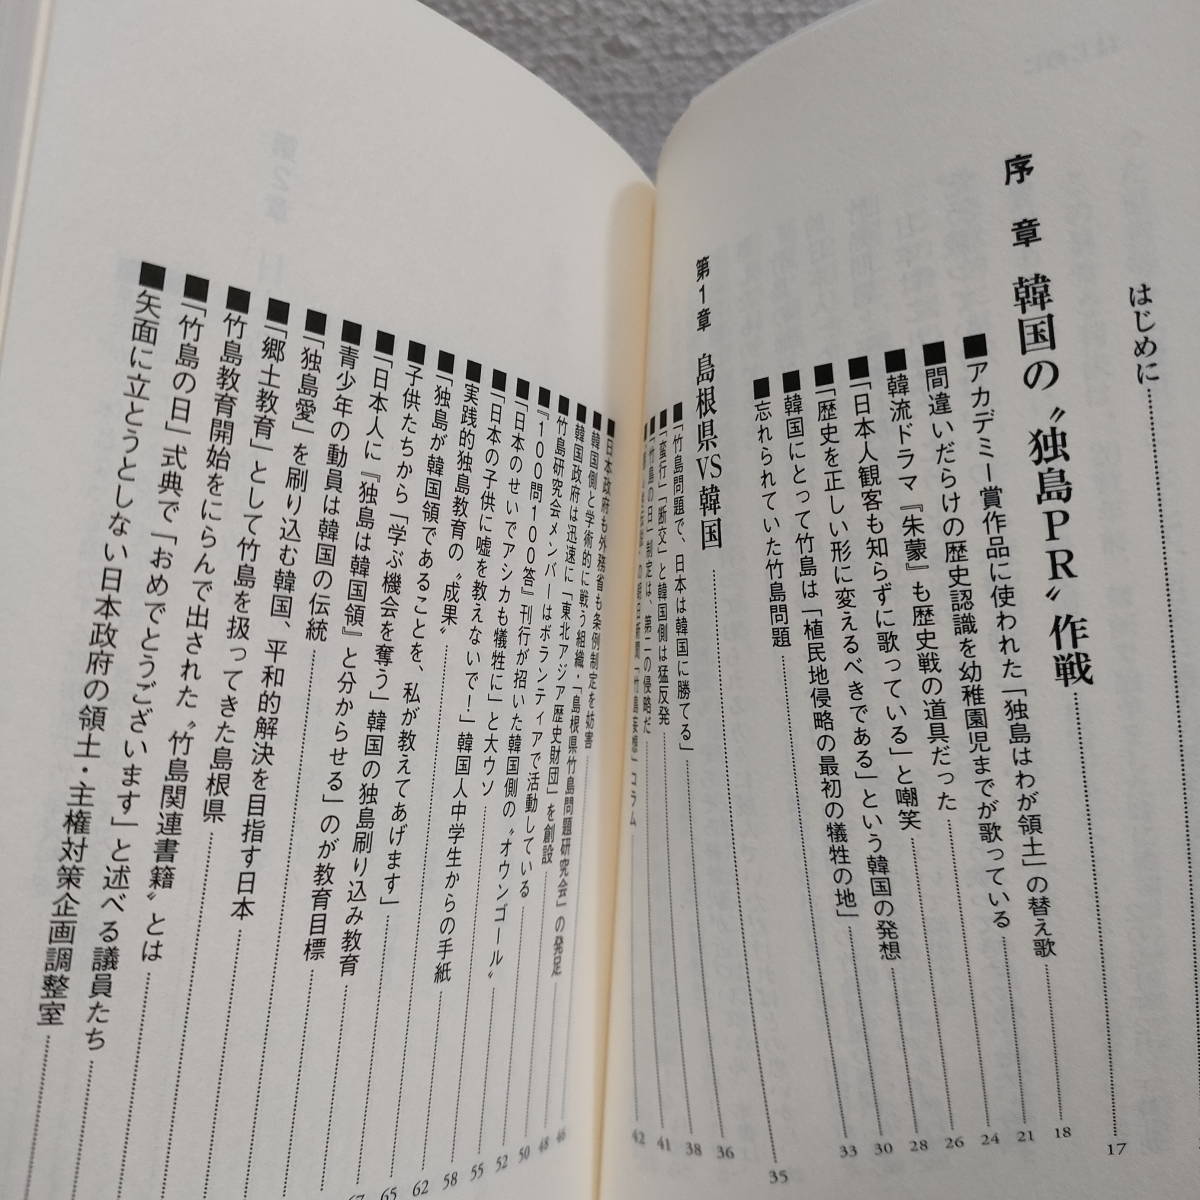 はじめに
序章 韓国の〝独島PR〟作戦 17
■アカデミー賞作品に使われた「独島はわが領土」の替え歌 18
■間違いだらけの歴史認識を幼稚園児までが歌っている 21
■韓流ドラマ『朱蒙』も歴史戦の道具だった 24
■「日本人観客も知らずに歌っている」と嘲笑 26
■「歴史を正しい形に変えるべきである」という韓国の発想 28
■韓国にとって竹島は「植民地侵略の最初の犠牲の地」 30
■忘れられていた竹島問題 33
第1章 島根県VS韓国 35
■「竹島問題で、日本は韓国に勝てる」 36
■「蛮行」「断交」と韓国側は猛反発 38
■「竹島の日」制定は、第二の侵略だ 41
朝日新聞「竹島妄想」コラム 42
■日本政府も外務省も条例制定を妨害
■韓国側と学術的に戦う組織・「島根県竹島問題研究会」の発足 46
■韓国政府は迅速に「東北アジア歴史財団」を創設 48
■竹島研究会メンバーはボランティアで活動している 50
■『100問100答』刊行が招いた韓国側の〝オウンゴール〟 52
■「日本のせいでアシカも犠牲に」と大ウソ 55
■「日本の子供に嘘を教えないで！」韓国人中学生からの手紙 58
■実践的独島教育の〝成果〟 62
■「独島が韓国領であることを、私が教えてあげます」 65
■子供たちから「学ぶ機会を奪う」韓国の独島刷り込み教育 67
■「日本人に『独島は韓国領』と分からせる」のが教育目標
■青少年の動員は韓国の伝統
■「独島愛」を刷り込む韓国、平和的解決を目指す日本
■「郷土教育」として竹島を扱ってきた島根県
■竹島教育開始をにらんで出された〝竹島関連書籍〟とは
■「竹島の日」式典で「おめでとうございます」と述べる議員たち
■矢面に立とうとしない日本政府の領土・主権対策企画調整室